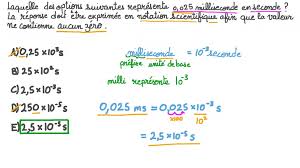 Laquelle des options suivantes représente 0,025 milliseconde en seconde ?
La réponse doit être exprimée en notation scientifique afin que la valeur
ne contienne aucun zéro.
A) 0,25 x 10³ s
B) 25 x 10² s
C) 2,5 x 10⁻³ s
D) 250 x 10⁻⁵ s
E) 2,5 x 10⁻⁵ s
milliseconde = 10⁻³ seconde
préfixe unité de base
milli représente 10⁻³
0,025 ms = 0,025 x 10⁻³ s
x100 10²
= 2,5 x 10⁻⁵ s